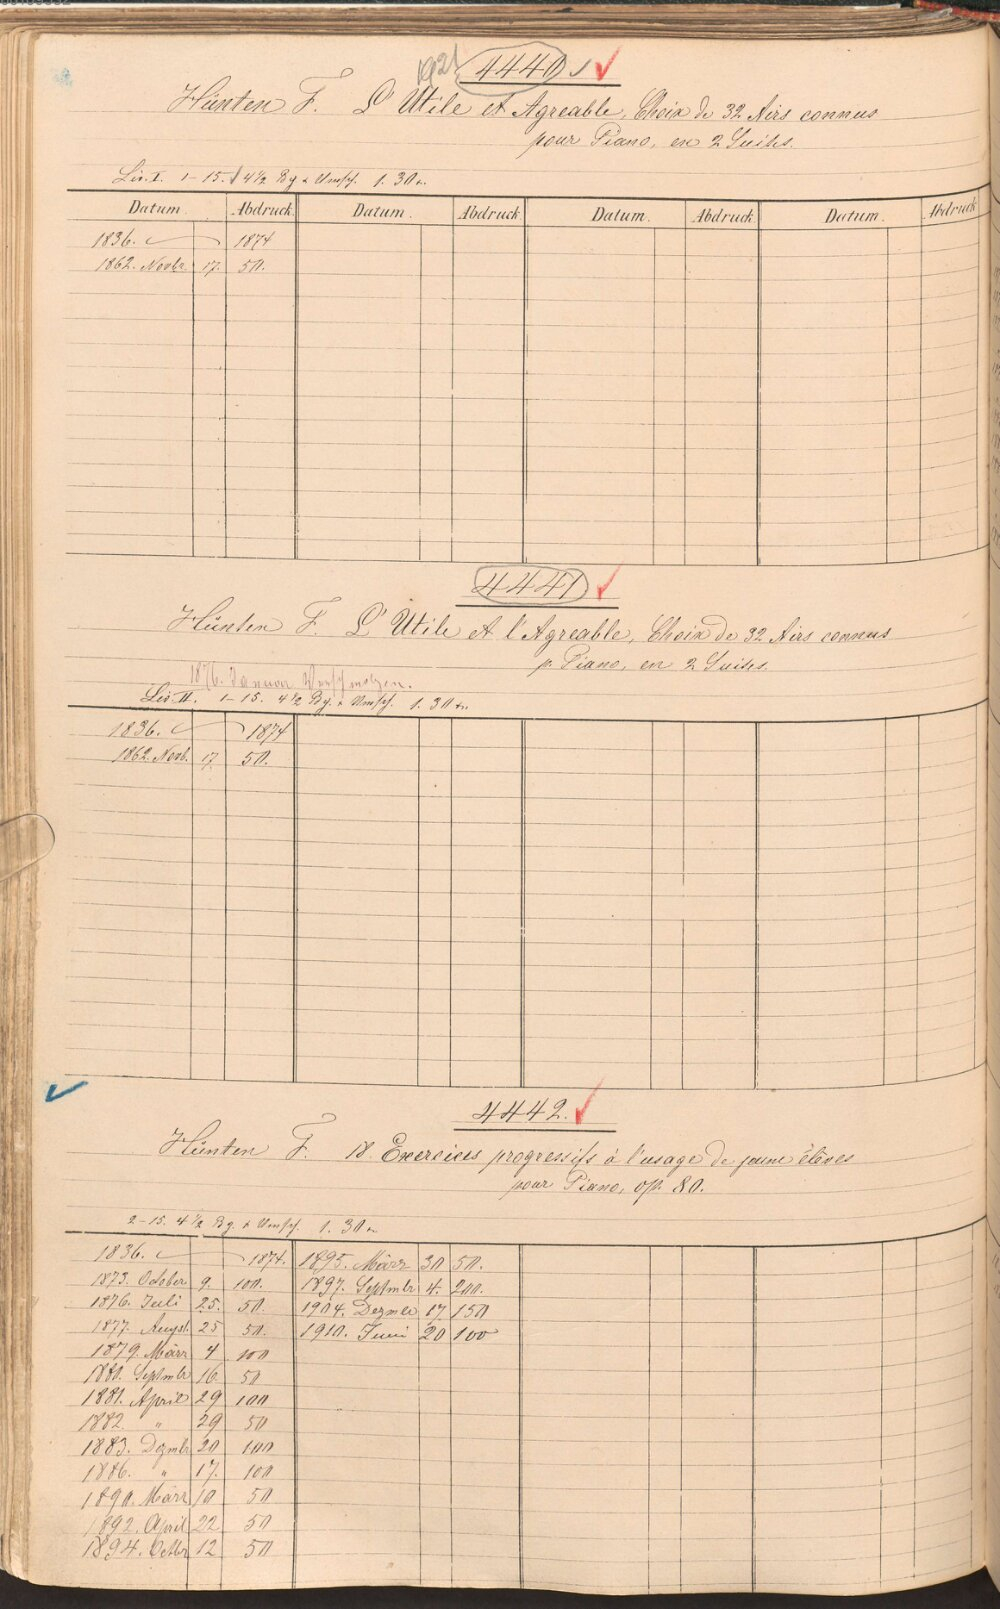 1921 4440
Hünten F. L'Utile et Agreable, Choix de 32 Airs connus
pour Piano, en 2 Suites.
Liv. I. 1-15. 4½ Bg + Umsch. 1. 30
Datum. Abdruck. Datum. Abdruck. Datum. Abdruck. Datum. Abdruck
1836. 1874
1862. Novbr. 17. 50.
4441
Hünten F. L'Utile et l'Agreable, Choix de 32 Airs connus
p. Piano, en 2 Suites.
1876. Januar
Liv. II. 1-15. 4½ Bg. + Umsch. 1. 30
1836. 1874
1862. Novb. 17. 50.
4442.
Hünten F. 18 Exercices progressifs à l'usage de jeune élèves
pour Piano, op. 80.
2-15. 4½ Bg. + Umsch. 1. 30
1836. 1874. 1895. März 30 50.
1873. October 9. 100. 1897. Septmbr 4. 200.
1876. Juli 25. 50. 1904. Dezmbr 17 150
1877. August. 25 50. 1910. Juni 20 100
1879. März 4 100
1880. Septmbr 16. 50
1881. April 29 100
1882 " 29 50
1883. Dezmbr 20 100
1886. " 17. 100
1890. März 10 50
1892. April 22 50
1894. Octbr 12 50